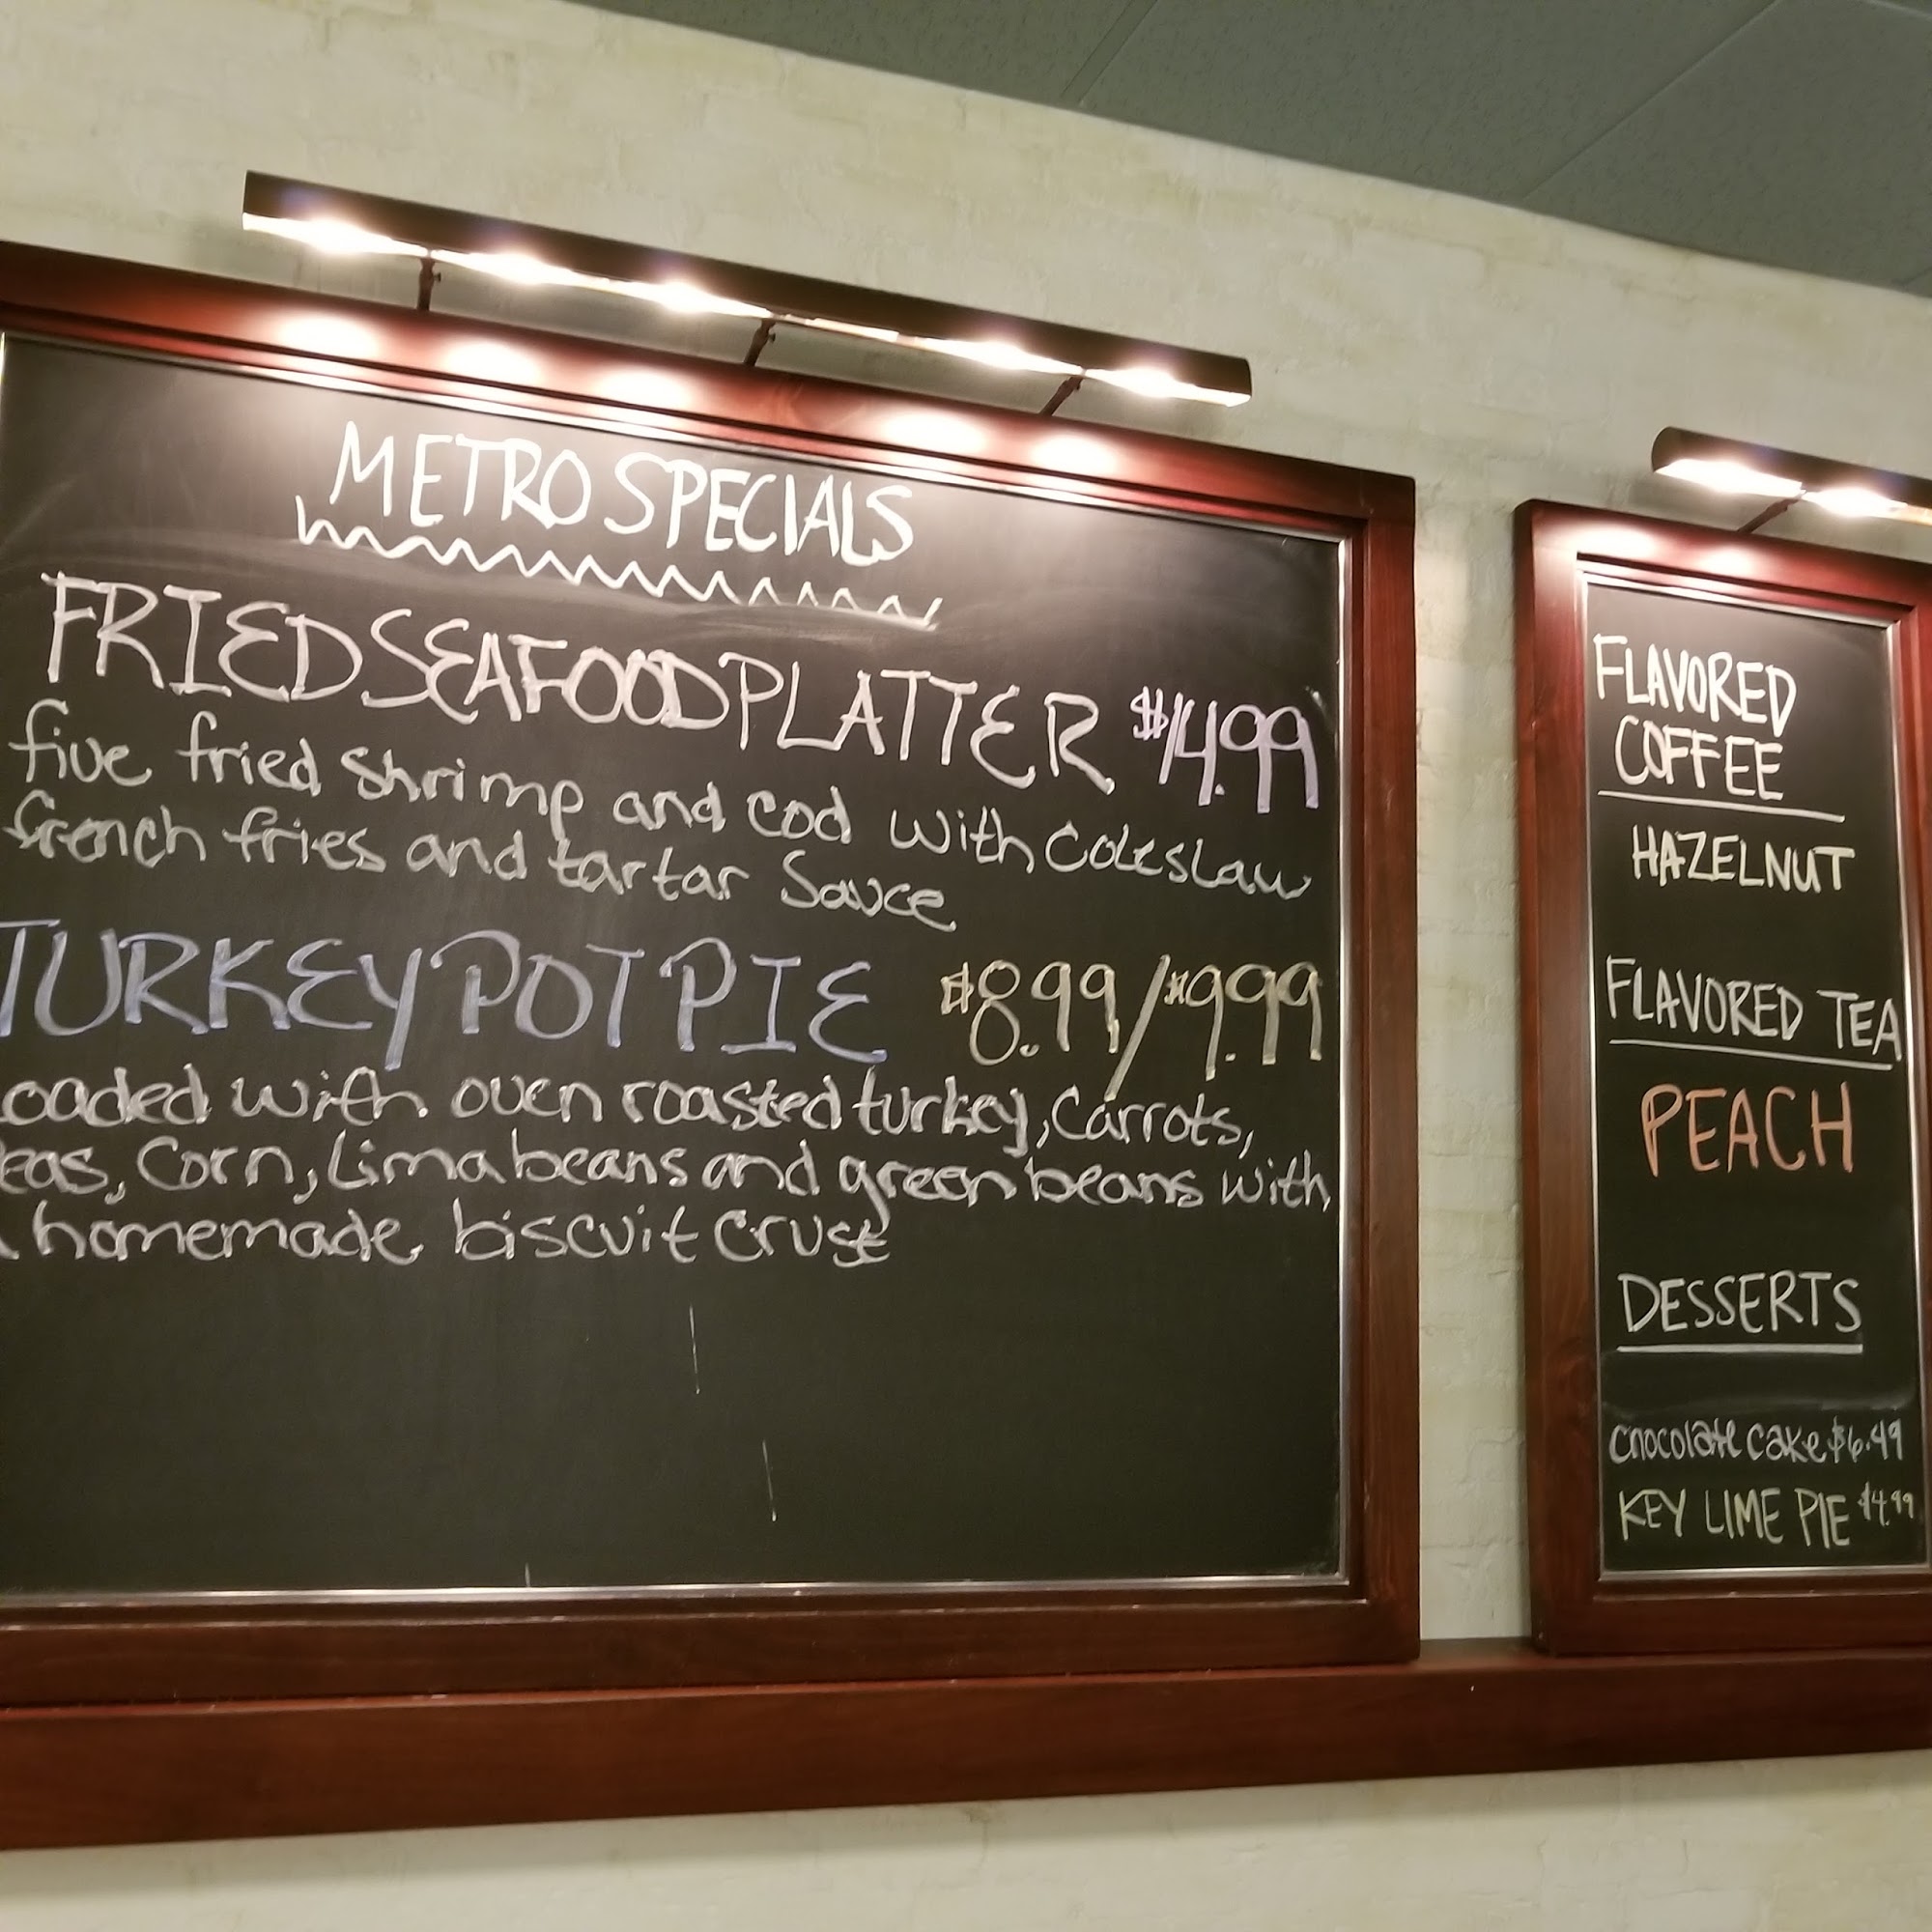 METRO SPECIALS
FRIED SEAFOOD PLATTER $14.99
five fried shrimp and cod with coleslaw
french fries and tartar sauce
TURKEY POT PIE $8.99/$9.99
oaded with oven roasted turkey, carrots,
eas, corn, lima beans and green beans with
homemade biscuit crust
FLAVORED
COFFEE
HAZELNUT
FLAVORED TEA
PEACH
DESSERTS
chocolate cake $6.49
KEY LIME PIE $4.99